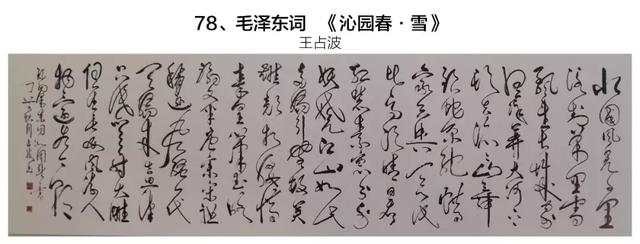 78、毛泽东词 《沁园春·雪》
王占波
北国风光千里
冰封万里雪
飘望长城内外
惟余莽莽大河上下
顿失滔滔山舞
银蛇原驰蜡
象欲与天公试
比高须晴日看
红装素裹分外
妖娆江山如此
多娇引无数英
雄竞折腰惜
秦皇汉武略
输文采唐宗宋祖
稍逊风骚一代
天骄成吉思汗
只识弯弓射大雕
俱往矣数风流人
物还看今朝